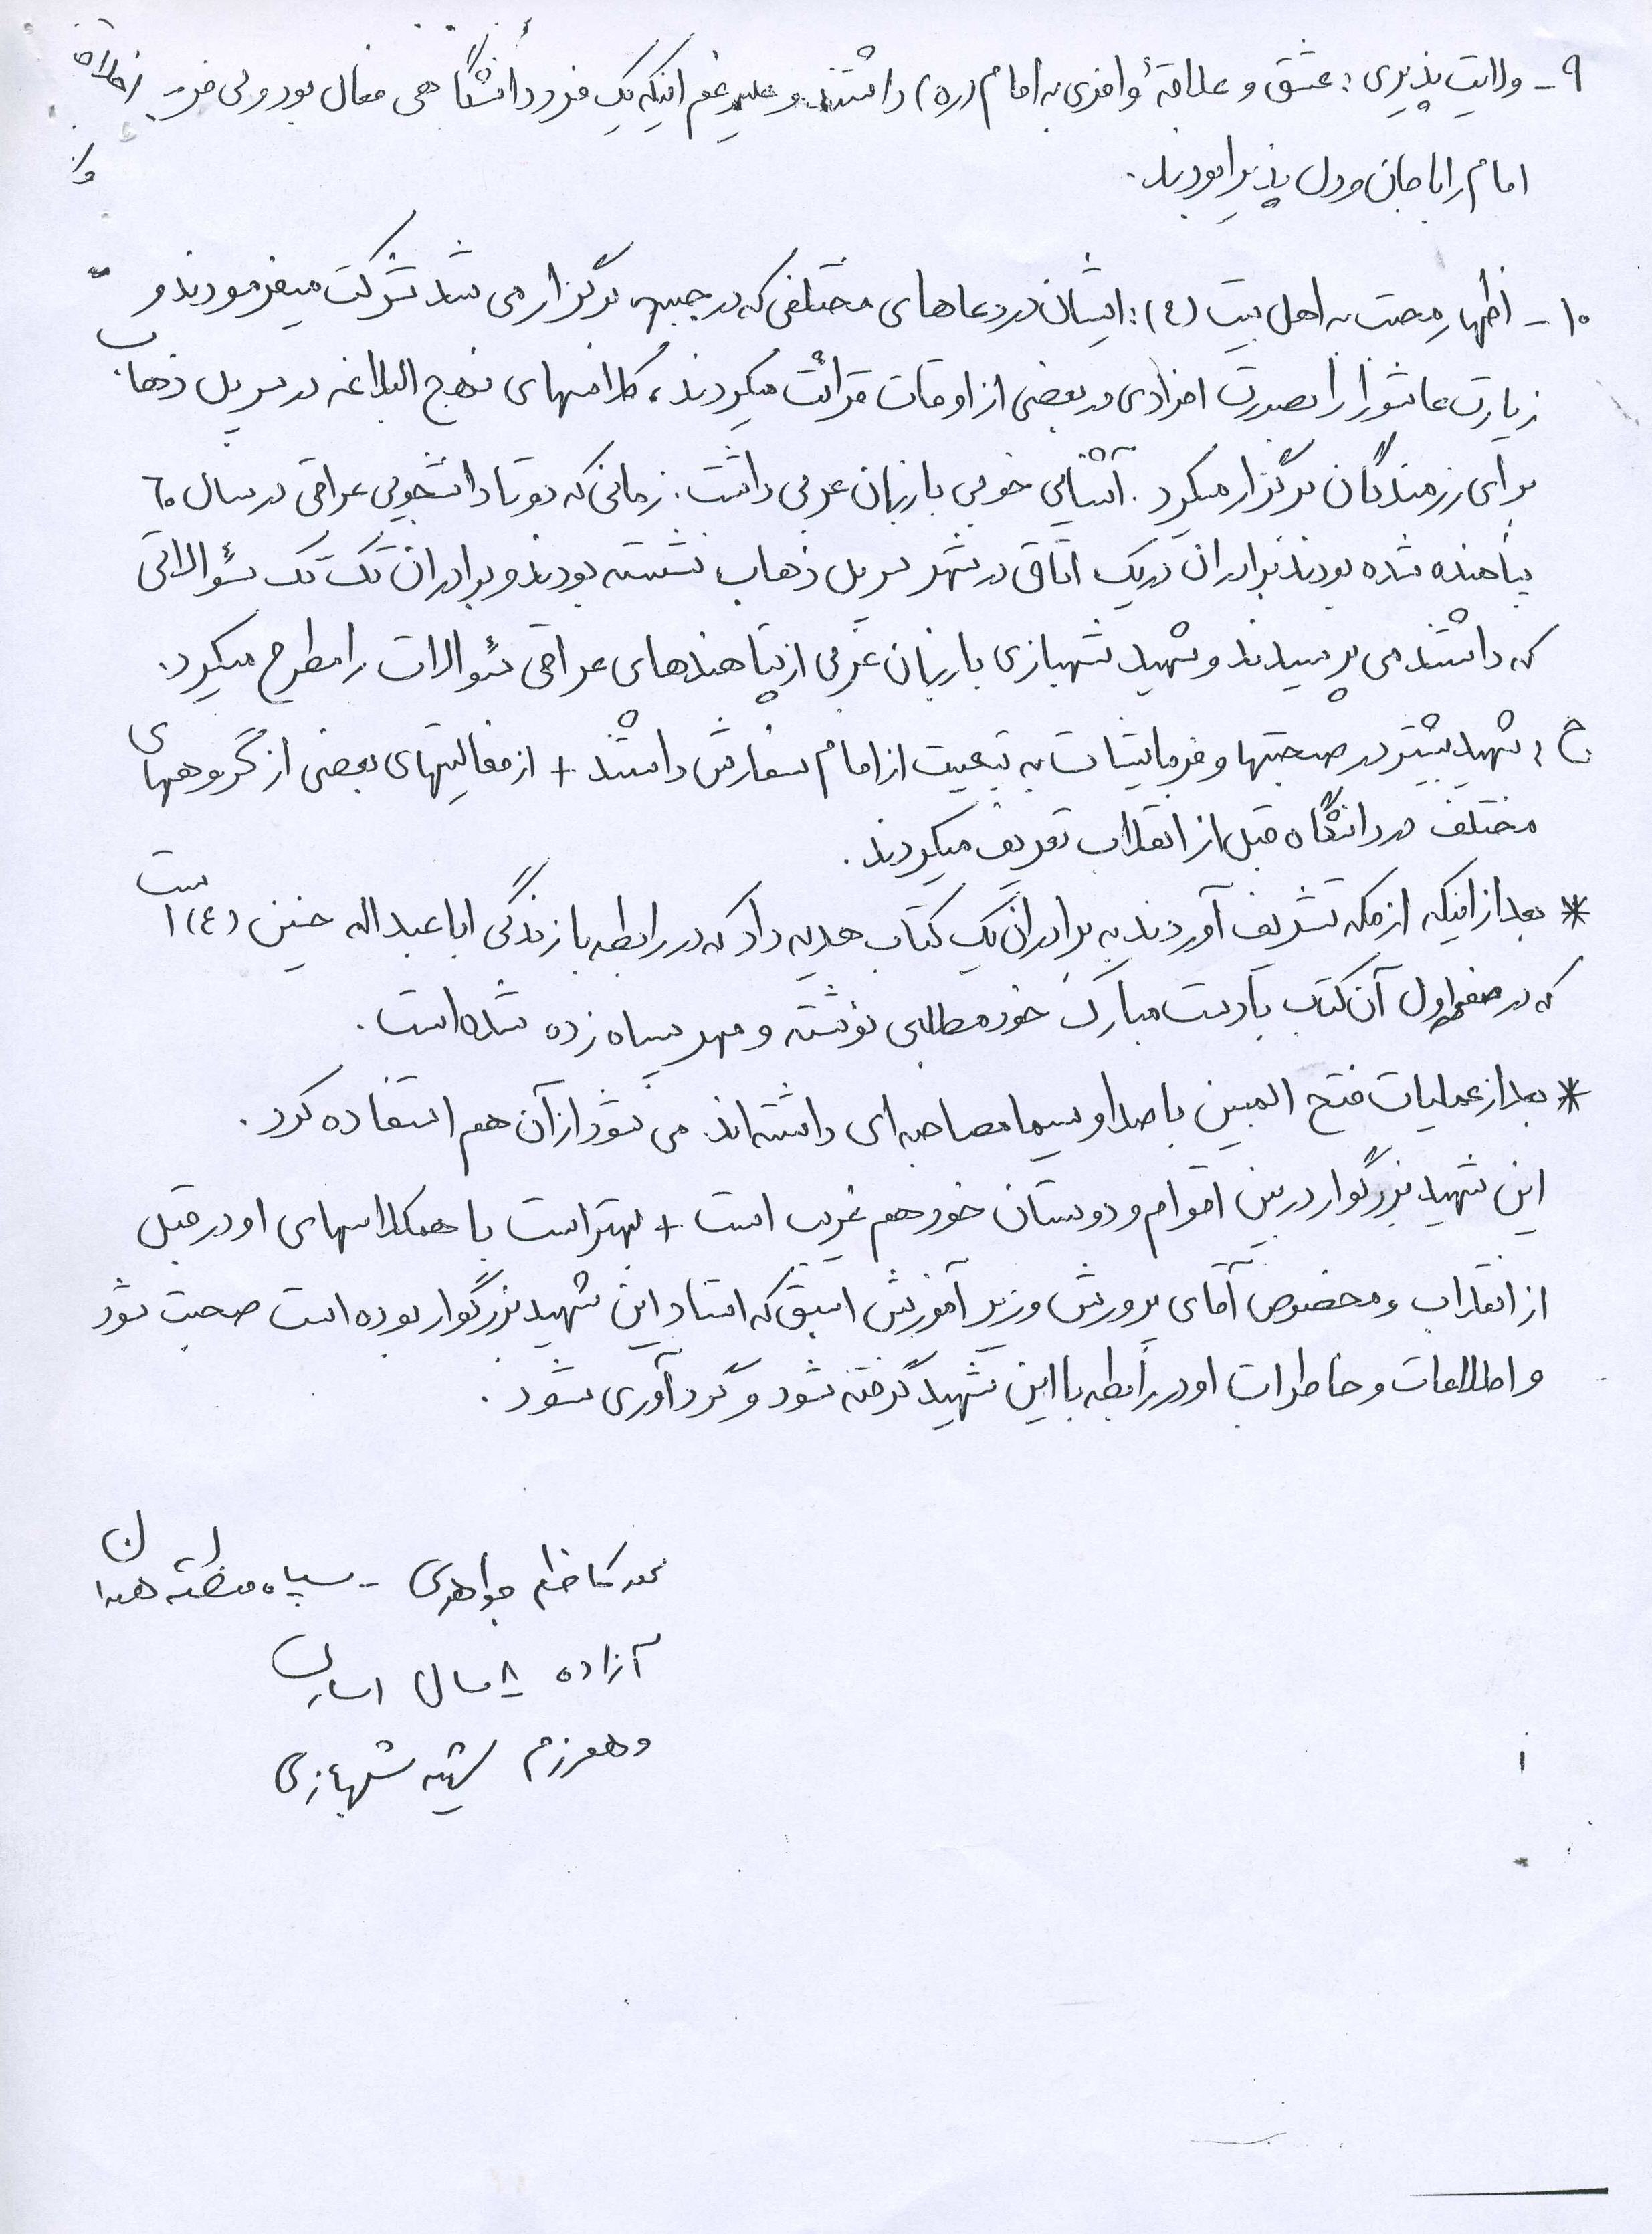 ۹- ولایت پذیری: عشق و علاقهٔ وافری به امام (ره) داشتند و علیرغم اینکه یک فرد دانشگاهی فعال بود ولی
امام را با جان و دل پذیرا بودند.
۱۰- اظهار محبت به اهل بیت (ع): ایشان در دعاهای مختلفی که در جبهه برگزار می شد شرکت میفرمودند و
زیارت عاشورا را بصورت انفرادی در بعضی از اوقات قرائت میکردند، کلاسهای نهج البلاغه در سرپل ذهاب
برای رزمندگان برگزار میکرد. آشنایی خوبی با زبان عربی داشت. زمانی که دو تا دانشجوی عراقی در سال ۶۰
پناهنده شده بودند برادران در یک اتاق در شهر سرپل ذهاب نشسته بودند و برادران تک تک سؤالاتی
که داشتند می پرسیدند و شهید شهبازی با زبان عربی از پناهندهای عراقی سؤالات را مطرح میکرد.
ج: شهید بیشتر در صحبتها و فرمایشات به تبعیت از امام سفارش داشتند + از فعالیتهای بعضی از گروههای
مختلف در دانشگاه قبل از انقلاب تعریف میکردند.
* بعد از اینکه از مکه تشریف آوردند به برادران یک کتاب هدیه داد که در رابطه با زندگی ابا عبداله حسین (ع) است
که در صفحه اول آن کتاب با دست مبارک خود مطالبی نوشته و مهر سپاه زده شده است.
* بعد از عملیات فتح المبین با صدا و سیما مصاحبه ای داشته اند. می شود از آن هم استفاده کرد.
این شهید بزرگوار در بین اقوام و دوستان خود هم غریب است + بهتر است با همکلاسهای او در قبل
از انقلاب و مخصوص آقای پرورش وزیر آموزش اسبق که استاد این شهید بزرگوار بوده است صحبت شود
و اطلاعات و خاطرات او در رابطه با این شهید گرفته شود و گردآوری شود.
محمد کاظم جواهری - سپاه منطقه همدان
آزاده ۸ سال اسارت
و همرزم شهید شهبازی